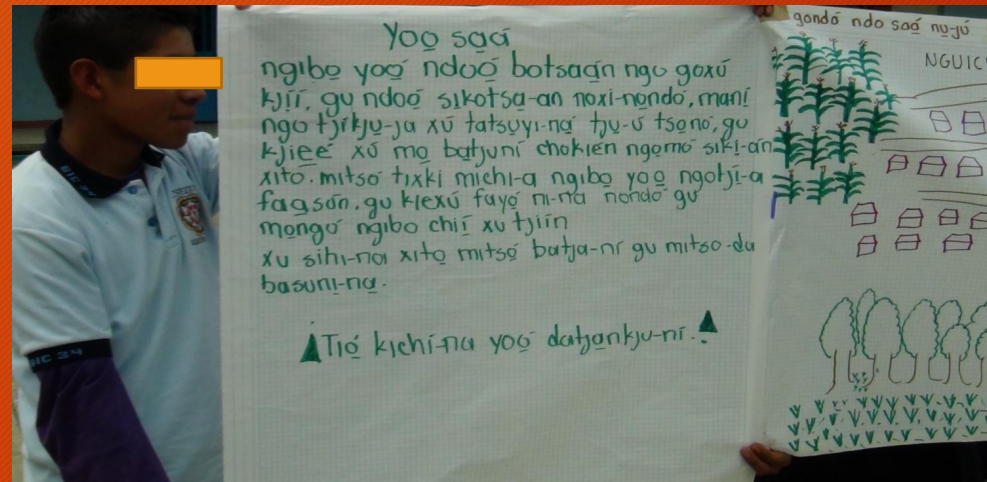 Yoo̱ sa̱á
ngibo̱ yoo̱ ndoó̱ botsaa̱n ngo̱ goxú
kjíí, gu̱ ndoó̱ sikotsa-an noxi-nondo, maní
ngo tjitkju-ja xú tatsuyi-na̱ tju-ú tsonó, gu̱
kjie̱e̱ xú mo̱ batjuní chokién ngomó siki-án
xitó. mitsó tixki michi-a̱ ngibo̱ yoo̱ ngotji-a
fagsón, gu̱ klexú fayó̱ ni-ná nondó gu̱
mo̱ngó ngibo chií̱ xu tjiín
xu sihi-na xito̱ mitsó̱ batja-ní gu̱ mitso-da
basuni-na̱.
¡Tió̱ kichi-na yoó̱ datjo̱nkju-ní.!
gondó ndo saá̱ nu̱-jú
NGUIC
BIC 34
BIC 34